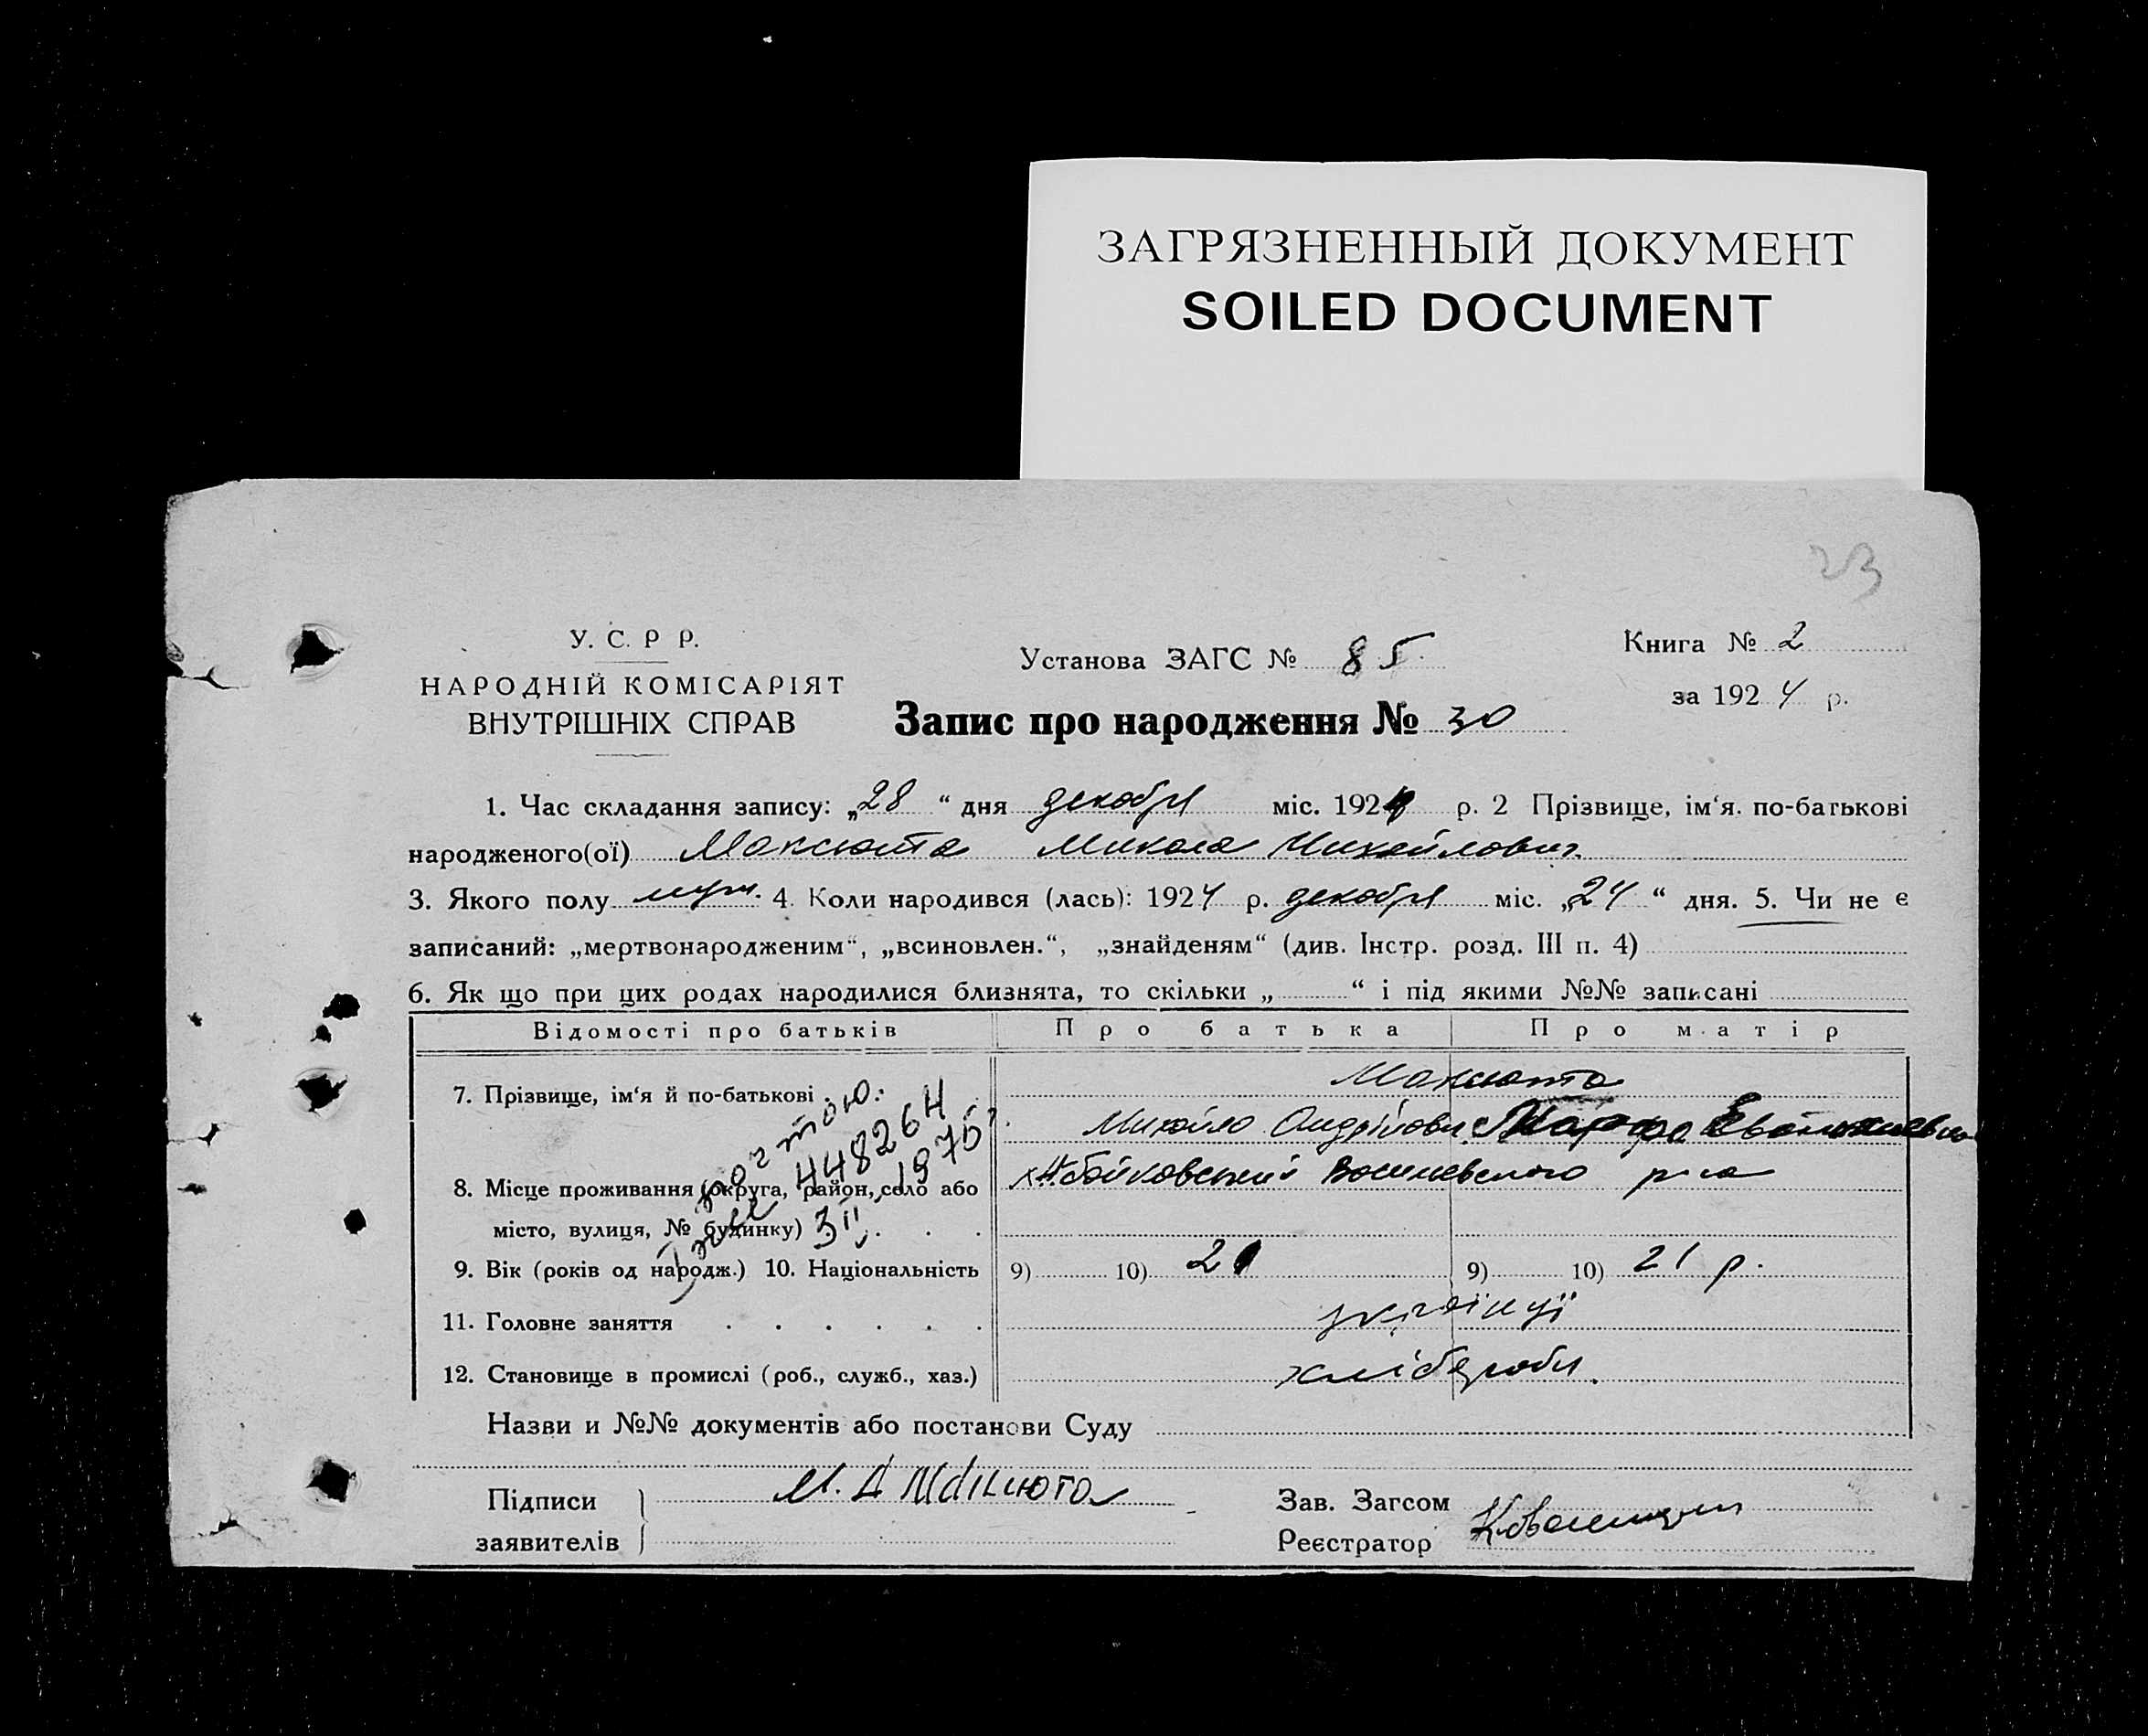 ЗАГРЯЗНЕННЫЙ ДОКУМЕНТ
SOILED DOCUMENT
23
У. С. Р Р.
НАРОДНІЙ КОМІСАРІЯТ
ВНУТРІШНІХ СПРАВ
Установа ЗАГС № 85.
Запис про народження № 30
Книга № 2
за 1924 р.
1. Час складання запису: „28“ дня декабря міс. 1924 р. 2 Прізвище, ім‘я. по-батькові
народженого(ої) Максюта Микола Михайлович.
3. Якого полу муж. 4. Коли народився (лась): 1924 р. декабря міс. „24“ дня. 5. Чи не є
записаний: „мертвонародженим“, „всиновлен.“, „знайденям“ (див. Інстр. розд. III п. 4)
6. Як що при цих родах народилися близнята, то скільки „ “ і під якими №№ записані
Відомості про батьків Про батька Про матір
7. Прізвище, ім‘я й по-батькові Максюта
Михайло Андрійович Марфа
8. Місце проживання (округа, район, село або
місто, вулиця, № будинку)
почтою:
448264
3 II 1975
9. Вік (років од народж.) 10. Національність 9) 10) 21 9) 10) 21 р.
11. Головне заняття українці
12. Становище в промислі (роб., служб., хаз.) хлібороби.
Назви и №№ документів або постанови Суду
Підписи заявителів М. А Максюта
Зав. Загсом
Реєстратор